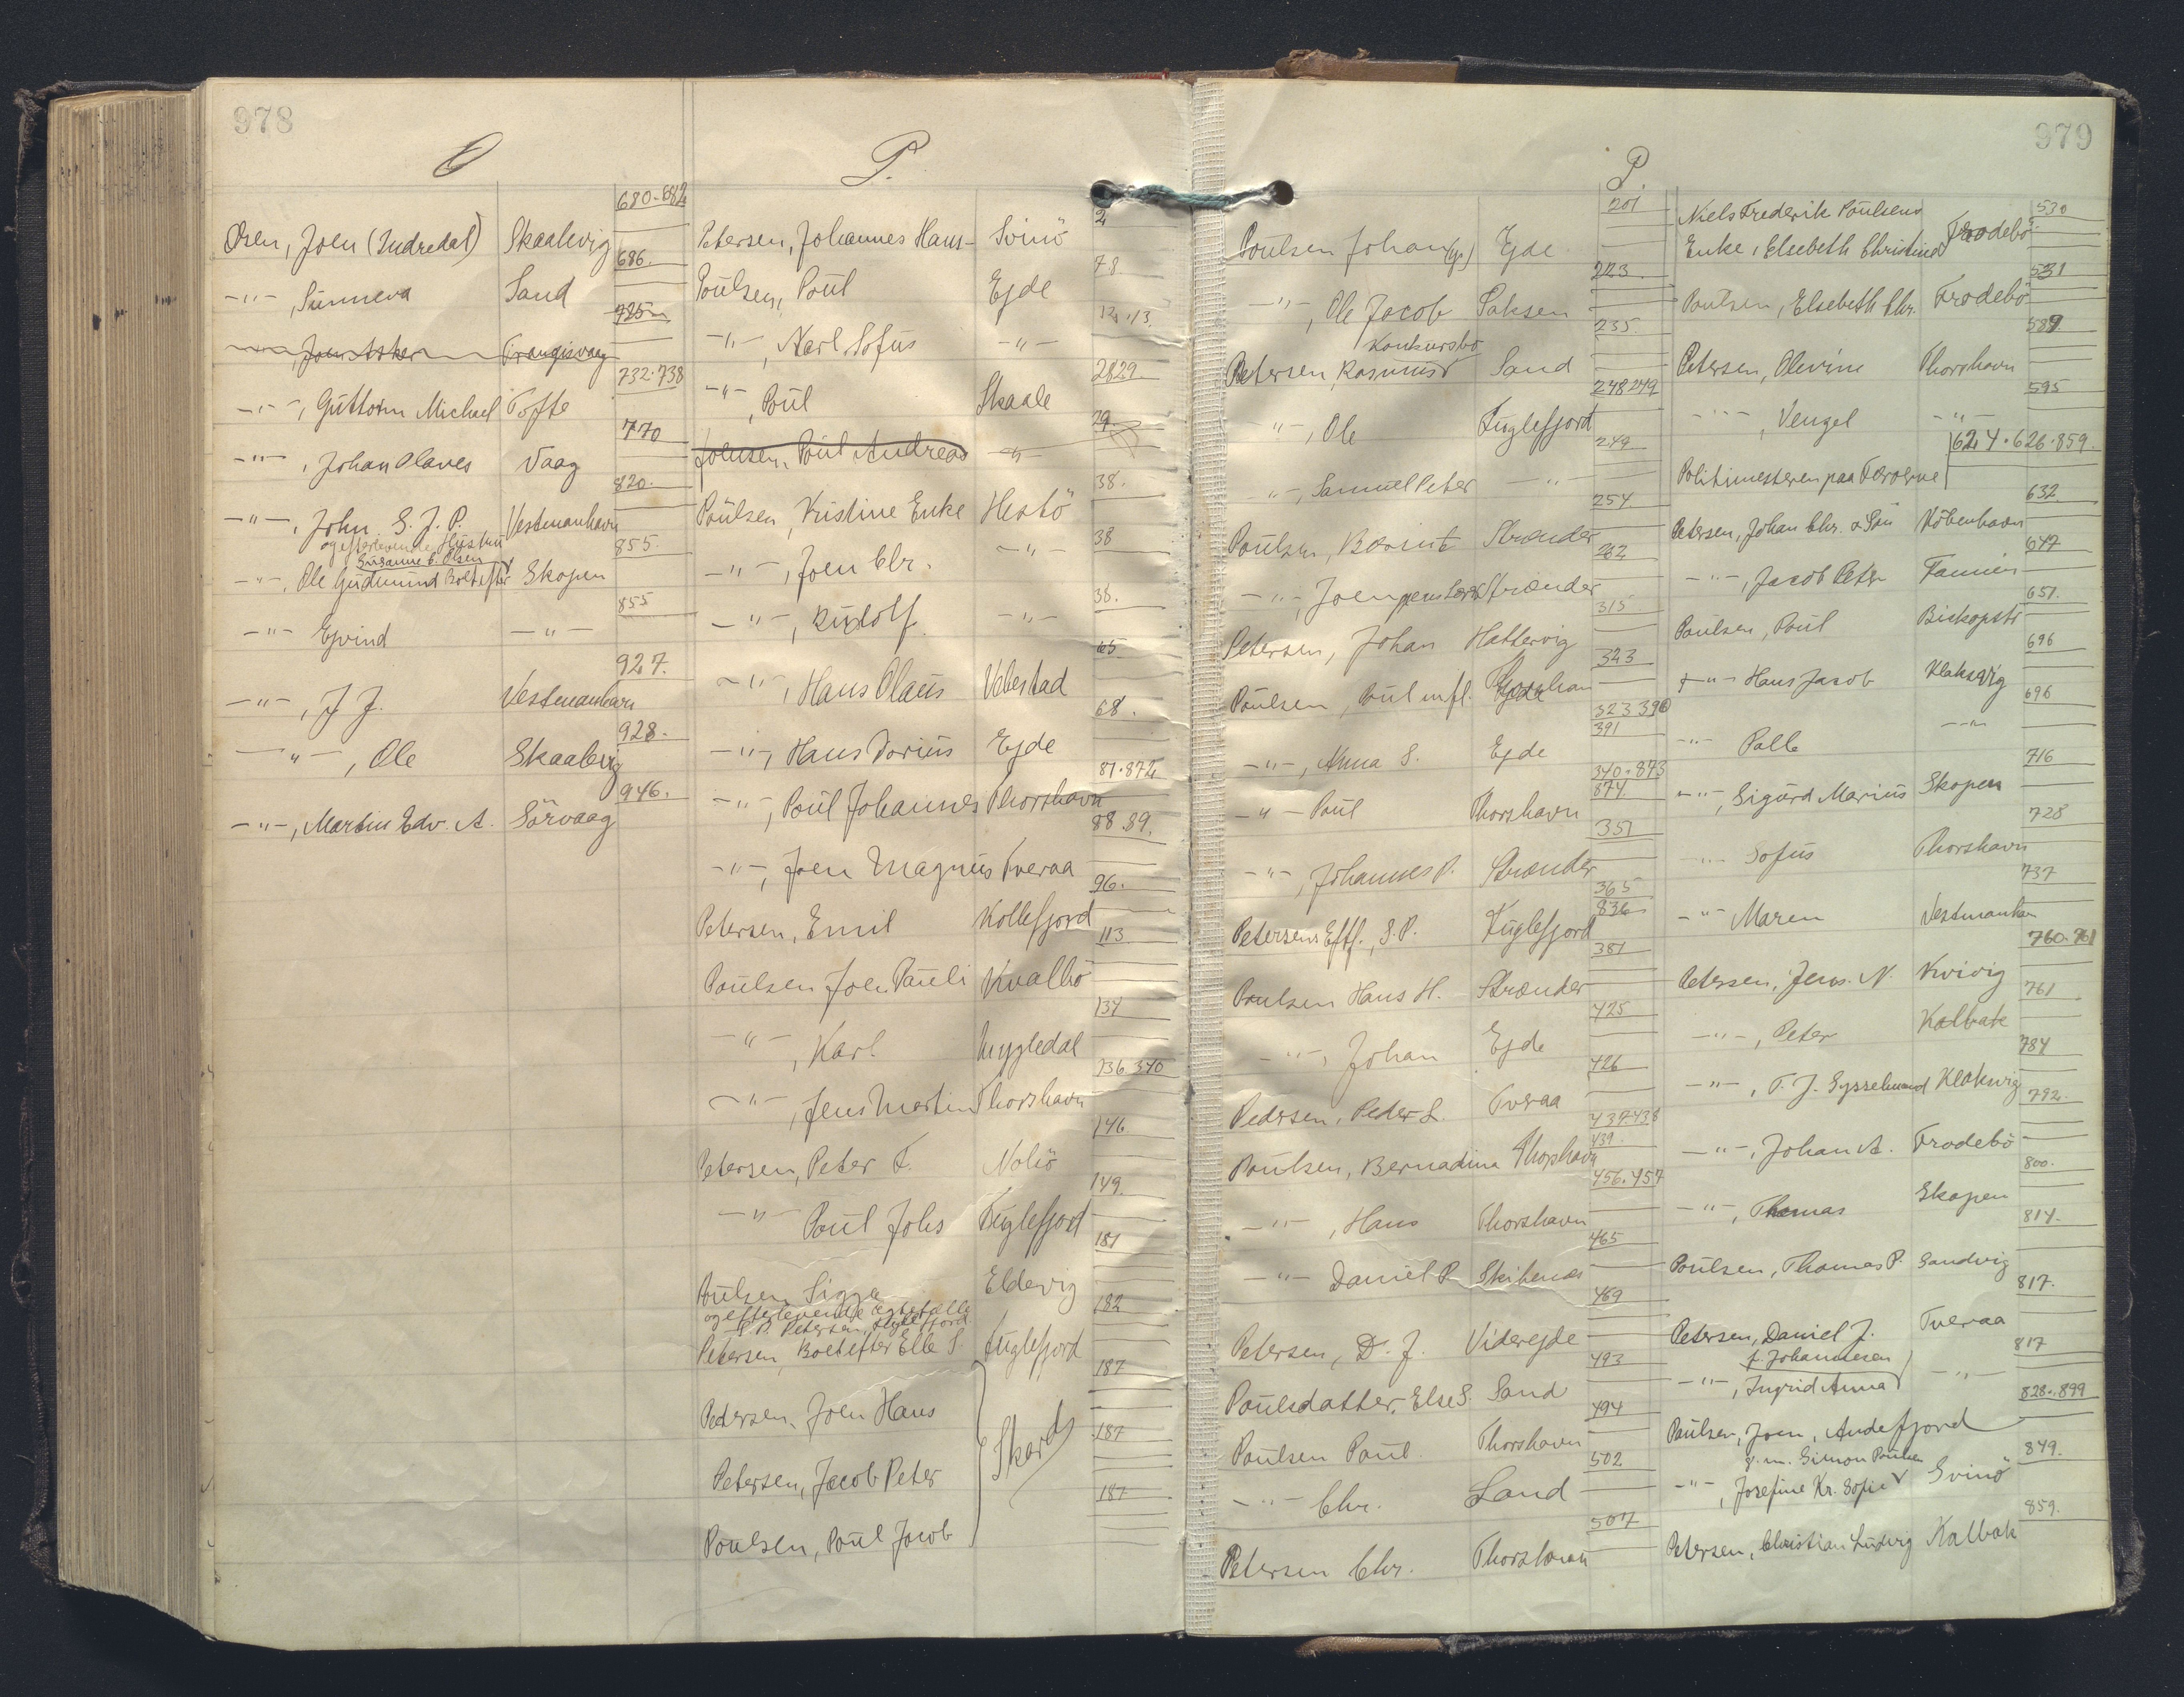 978
O
680-882
Osen, Joen (Indredal) Skaalevig
686.
-"-, Sunneva Sand
725
Trangisvaag
732.738
-"-, Guttorm Michael Tofte
770
-"-, Johan Olaves Vaag
820.
-"-, John. S. J. P. Vestmanhavn
og efterlevende Hustru
Susanne E. Olsen
855.
-"-, Ole Gudmund Boet efter Skopen
855
-"- Ejvind -"-
927.
-"-, J. J. Vestmanhavn
928.
-"-, Ole Skaalevig
946.
-"-, Martin Edv. A. Sörvaag
P.
2
Petersen, Johannes Hans- Svinö
78.
Poulsen, Poul Ejde
12.113.
-"-, Karl Sofus -"-
2829.
-"-, Poul Skaale
29.
Joensen, Poul Andreas -"-
38.
Poulsen, Kristine Enke Hestö
38
-"-, Joen Chr. -"-
38.
-"-, Rudolf -"-
65
-"-, Hans Olaus Velbestad
68.
-"-, Hans Dorius Ejde
81.872
-"-, Poul Johannes Thorshavn
88.89.
-"-, Joen Magnus Tveraa
96.
Petersen, Emil Kollefjord
113
Poulsen Joen Pauli Kvalbö
134
-"-, Karl Myggledal
136.340
-"-, Jens Martin Thorshavn
146
Petersen, Peter F. Nolsö
149.
-"- Poul Johs Fuglefjord
181
Poulsen Sigga Eldevig
og efterlevende Ægtefælle
S. P. Petersen, Fuglefjord
182
Petersen, Boet efter Elle S. Fuglefjord
187
Pedersen, Joen Hans
187
Petersen, Jacob Peter Skard
187
Poulsen, Poul Jacob
979
P.
201
Poulsen Johan (gr) Ejde
223.
-"-, Ole Jacob Saksen
235.
Konkursbo
Petersen, Rasmus Sand
248249
-"-, Ole Fuglefjord
249
-"-, Samuel Peter -"-
254
Poulsen, Strænder
262
-"-, Joen Strænder
315
Petersen, Johan Hattervig
323
Poulsen, Poul mfl. Thorshavn
323 390
391
-"-, Anna S. Ejde
340.873
874
-"- Poul Thorshavn
351
-"-, Johannes P. Strænder
365
836
Petersens Eftf., S. P. Fuglefjord
381
Poulsen Hans H. Strænder
425
-"-, Johan Ejde
426
Pedersen, Peder S. Tveraa
437.438
439.
Poulsen, Bernadina Thorshavn
456.457
-"-, Hans Thorshavn
465
-"- Daniel P. Skibenæs
469
Petersen, D. J. Viderejde
493
Poulsdatter, Else S. Sand
494
Poulsen Poul. Thorshavn
502
-"- Chr. Sand
507
Petersen Chr. Thorshavn
530
Niels Frederik Poulsens
Enke, Elsebeth Christina Frodebö
531
Poulsen, Elsebeth Chr. Frodebö
589
Petersen, Olevine Thorshavn
595
-"-, Vengel -"-
624.626.859.
Politimesteren paa Færöerne
632
Petersen, Johan Chr. & Sön Köbenhavn
647
-"-, Jacob Peter Famien
651.
Poulsen, Poul Biskopstö
696
-"- Hans Jacob Klaksvig
696
-"- Palle -"-
716
-"-, Sigurd Marius Skopen
728
-"- Sofus Thorshavn
737
-"- Maren Vestmanhavn
760.761
Petersen, Jens. N. Kvivig
761
-"-, Peter Kalbak
784
-"-, T. J. Sysselmand Klaksvig
792.
-"-, Johan A. Frodebö
800.
-"-, Thomas Skopen
814.
Poulsen, Thomas P. Sandvig
817.
Petersen, Daniel J. Tveraa
817
f. Johannesen
-"-, Ingrid Anna -"-
828.899
Poulsen, Joen, Andefjord
849.
g. m. Simon Poulsen
-"-, Josefine Kr. Sofie Svinö
859.
Petersen, Christian Ludvig Kalbak